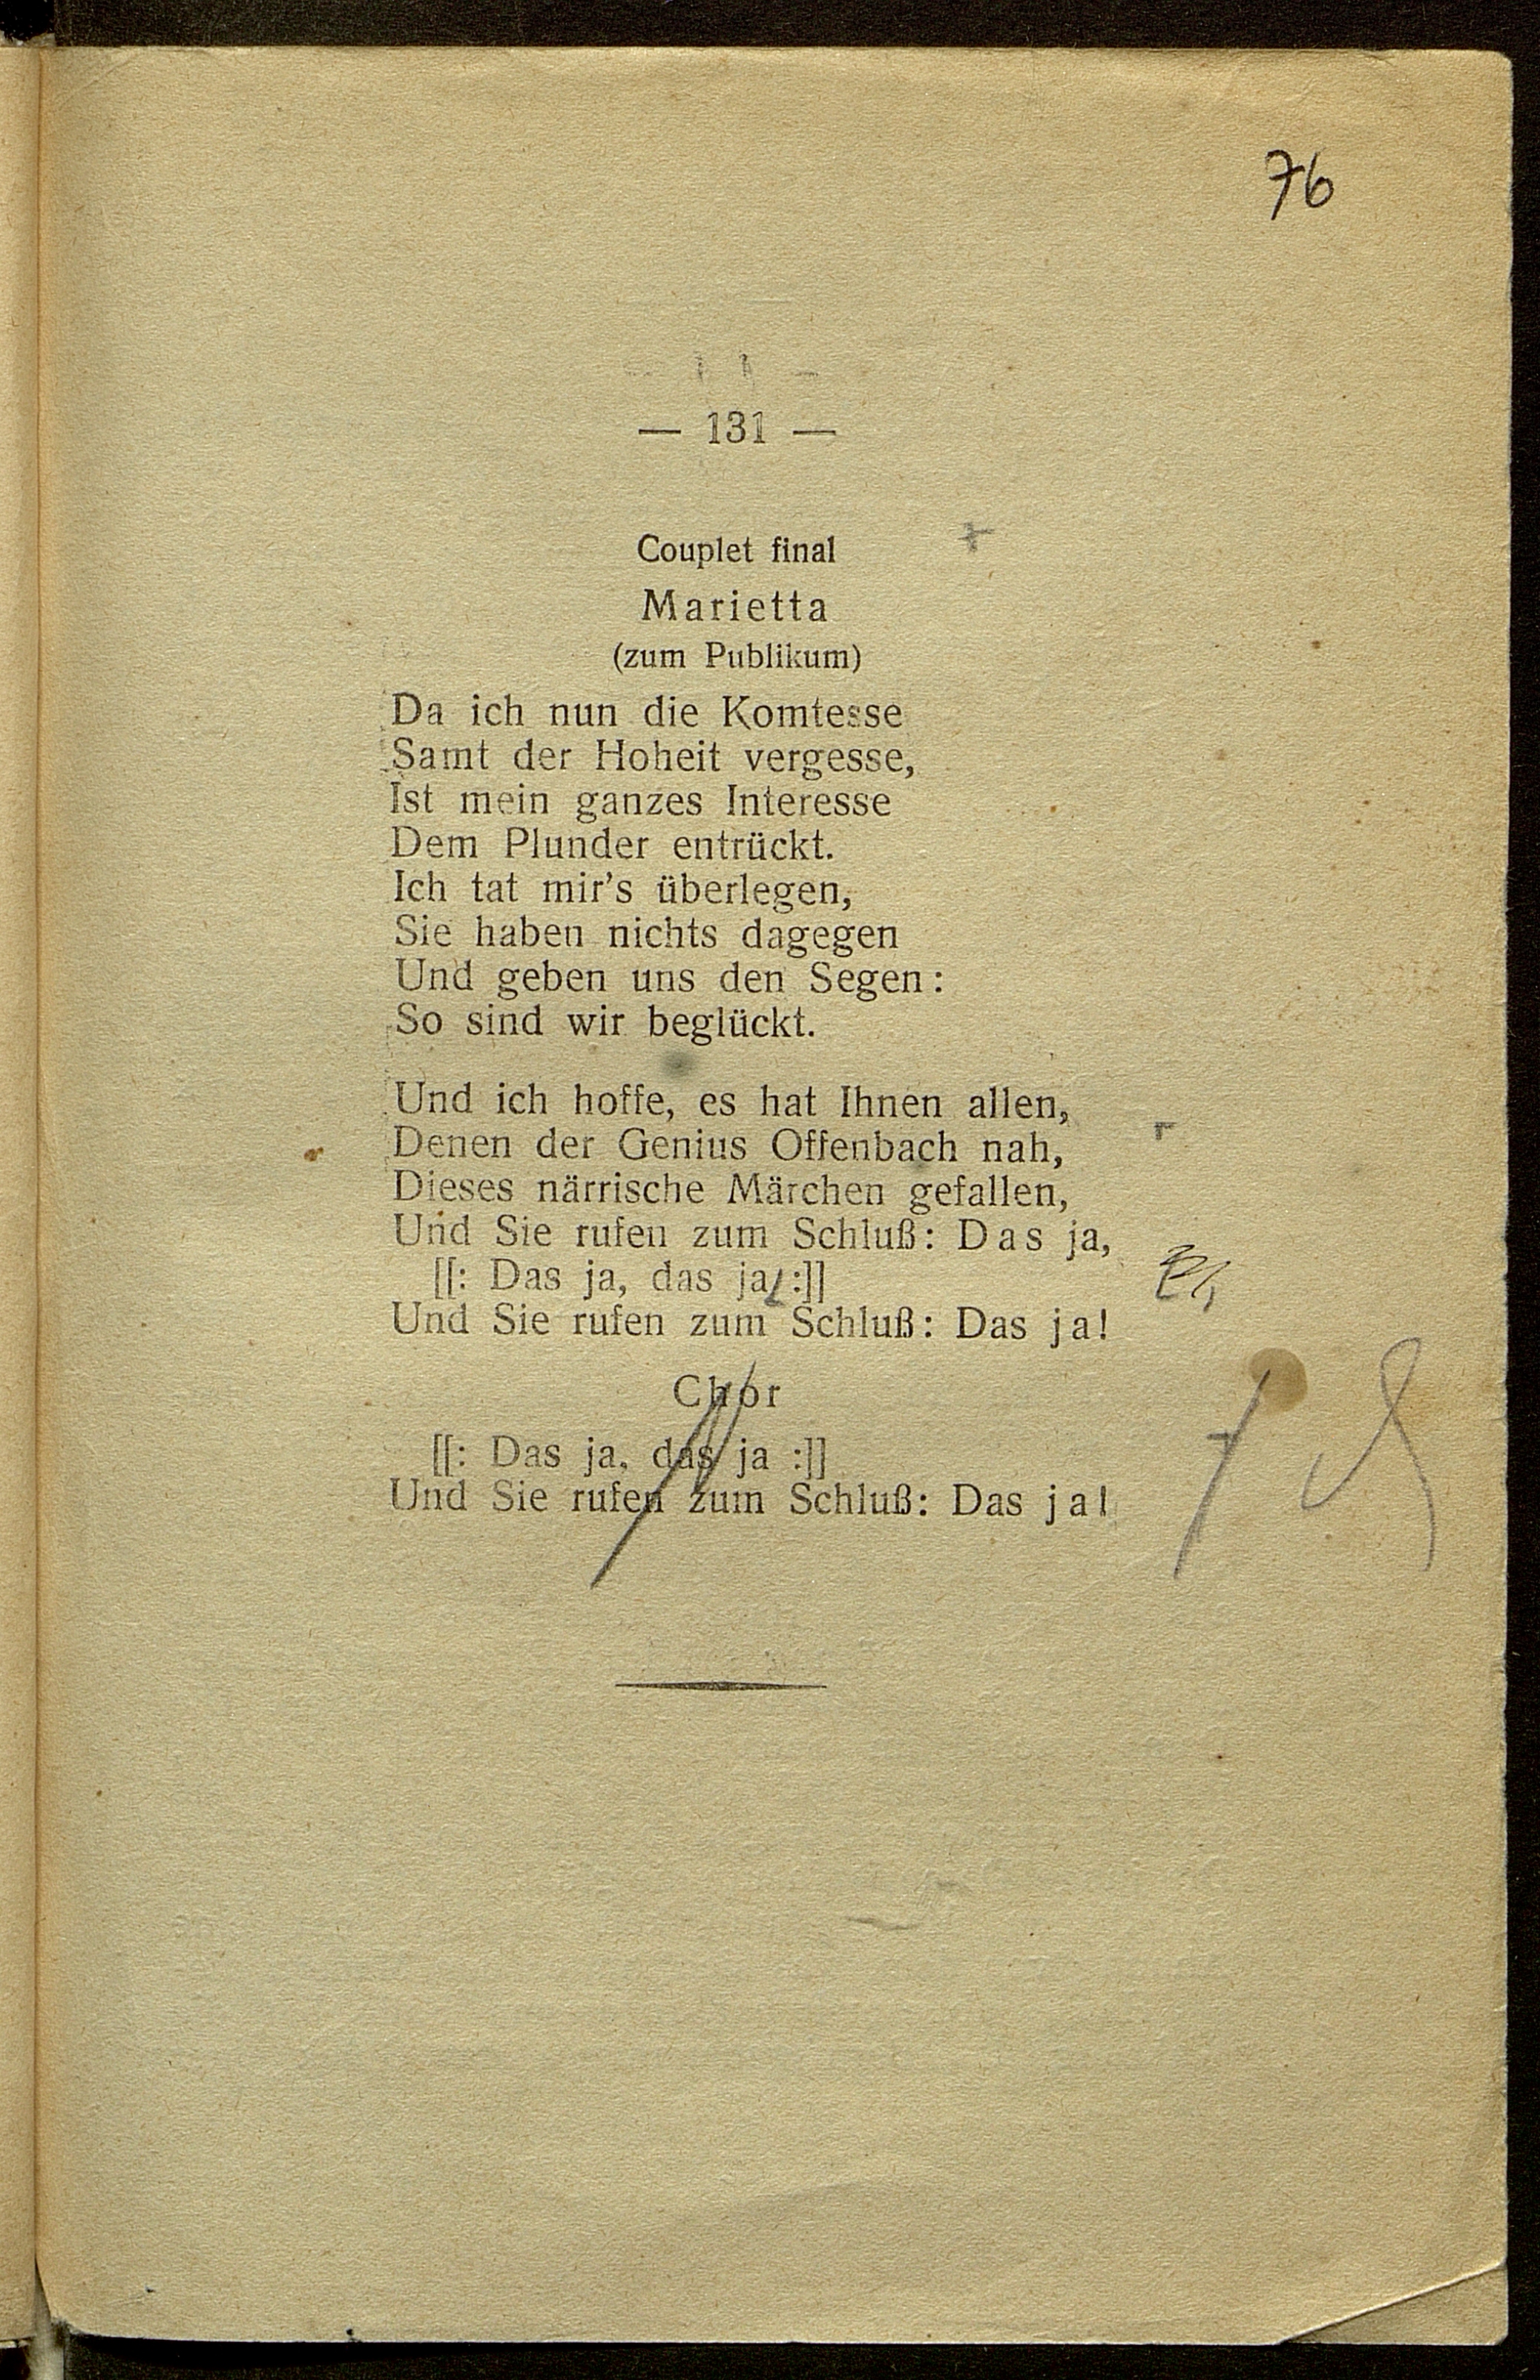 76
— 131 —
Couplet final
Marietta
(zum Publikum)
Da ich nun die Komtesse
Samt der Hoheit vergesse,
Ist mein ganzes Interesse
Dem Plunder entrückt.
Ich tat mir's überlegen,
Sie haben nichts dagegen
Und geben uns den Segen:
So sind wir beglückt.
Und ich hoffe, es hat Ihnen allen,
Denen der Genius Offenbach nah,
Dieses närrische Märchen gefallen,
Und Sie rufen zum Schluß: Das ja,
[[: Das ja, das ja, :]]
Und Sie rufen zum Schluß: Das ja!
Chor
[[: Das ja, das ja :]]
Und Sie rufen zum Schluß: Das ja!